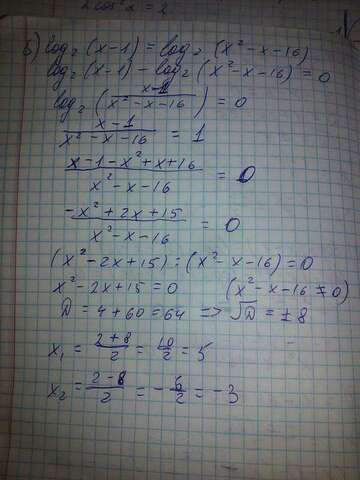 2 cos² x = 2
б) log₂ (x-1) = log₂ (x²-x-16)
log₂ (x-1) - log₂ (x²-x-16) = 0
log₂ ( (x-1)/(x²-x-16) ) = 0
(x-1)/(x²-x-16) = 1
(x-1-x²+x+16)/(x²-x-16) = 0
(-x²+2x+15)/(x²-x-16) = 0
(x²-2x+15) : (x²-x-16) = 0
x²-2x+15 = 0 (x²-x-16 ≠ 0)
D = 4+60 = 64 => √D = ±8
x₁ = (2+8)/2 = 10/2 = 5
x₂ = (2-8)/2 = -6/2 = -3